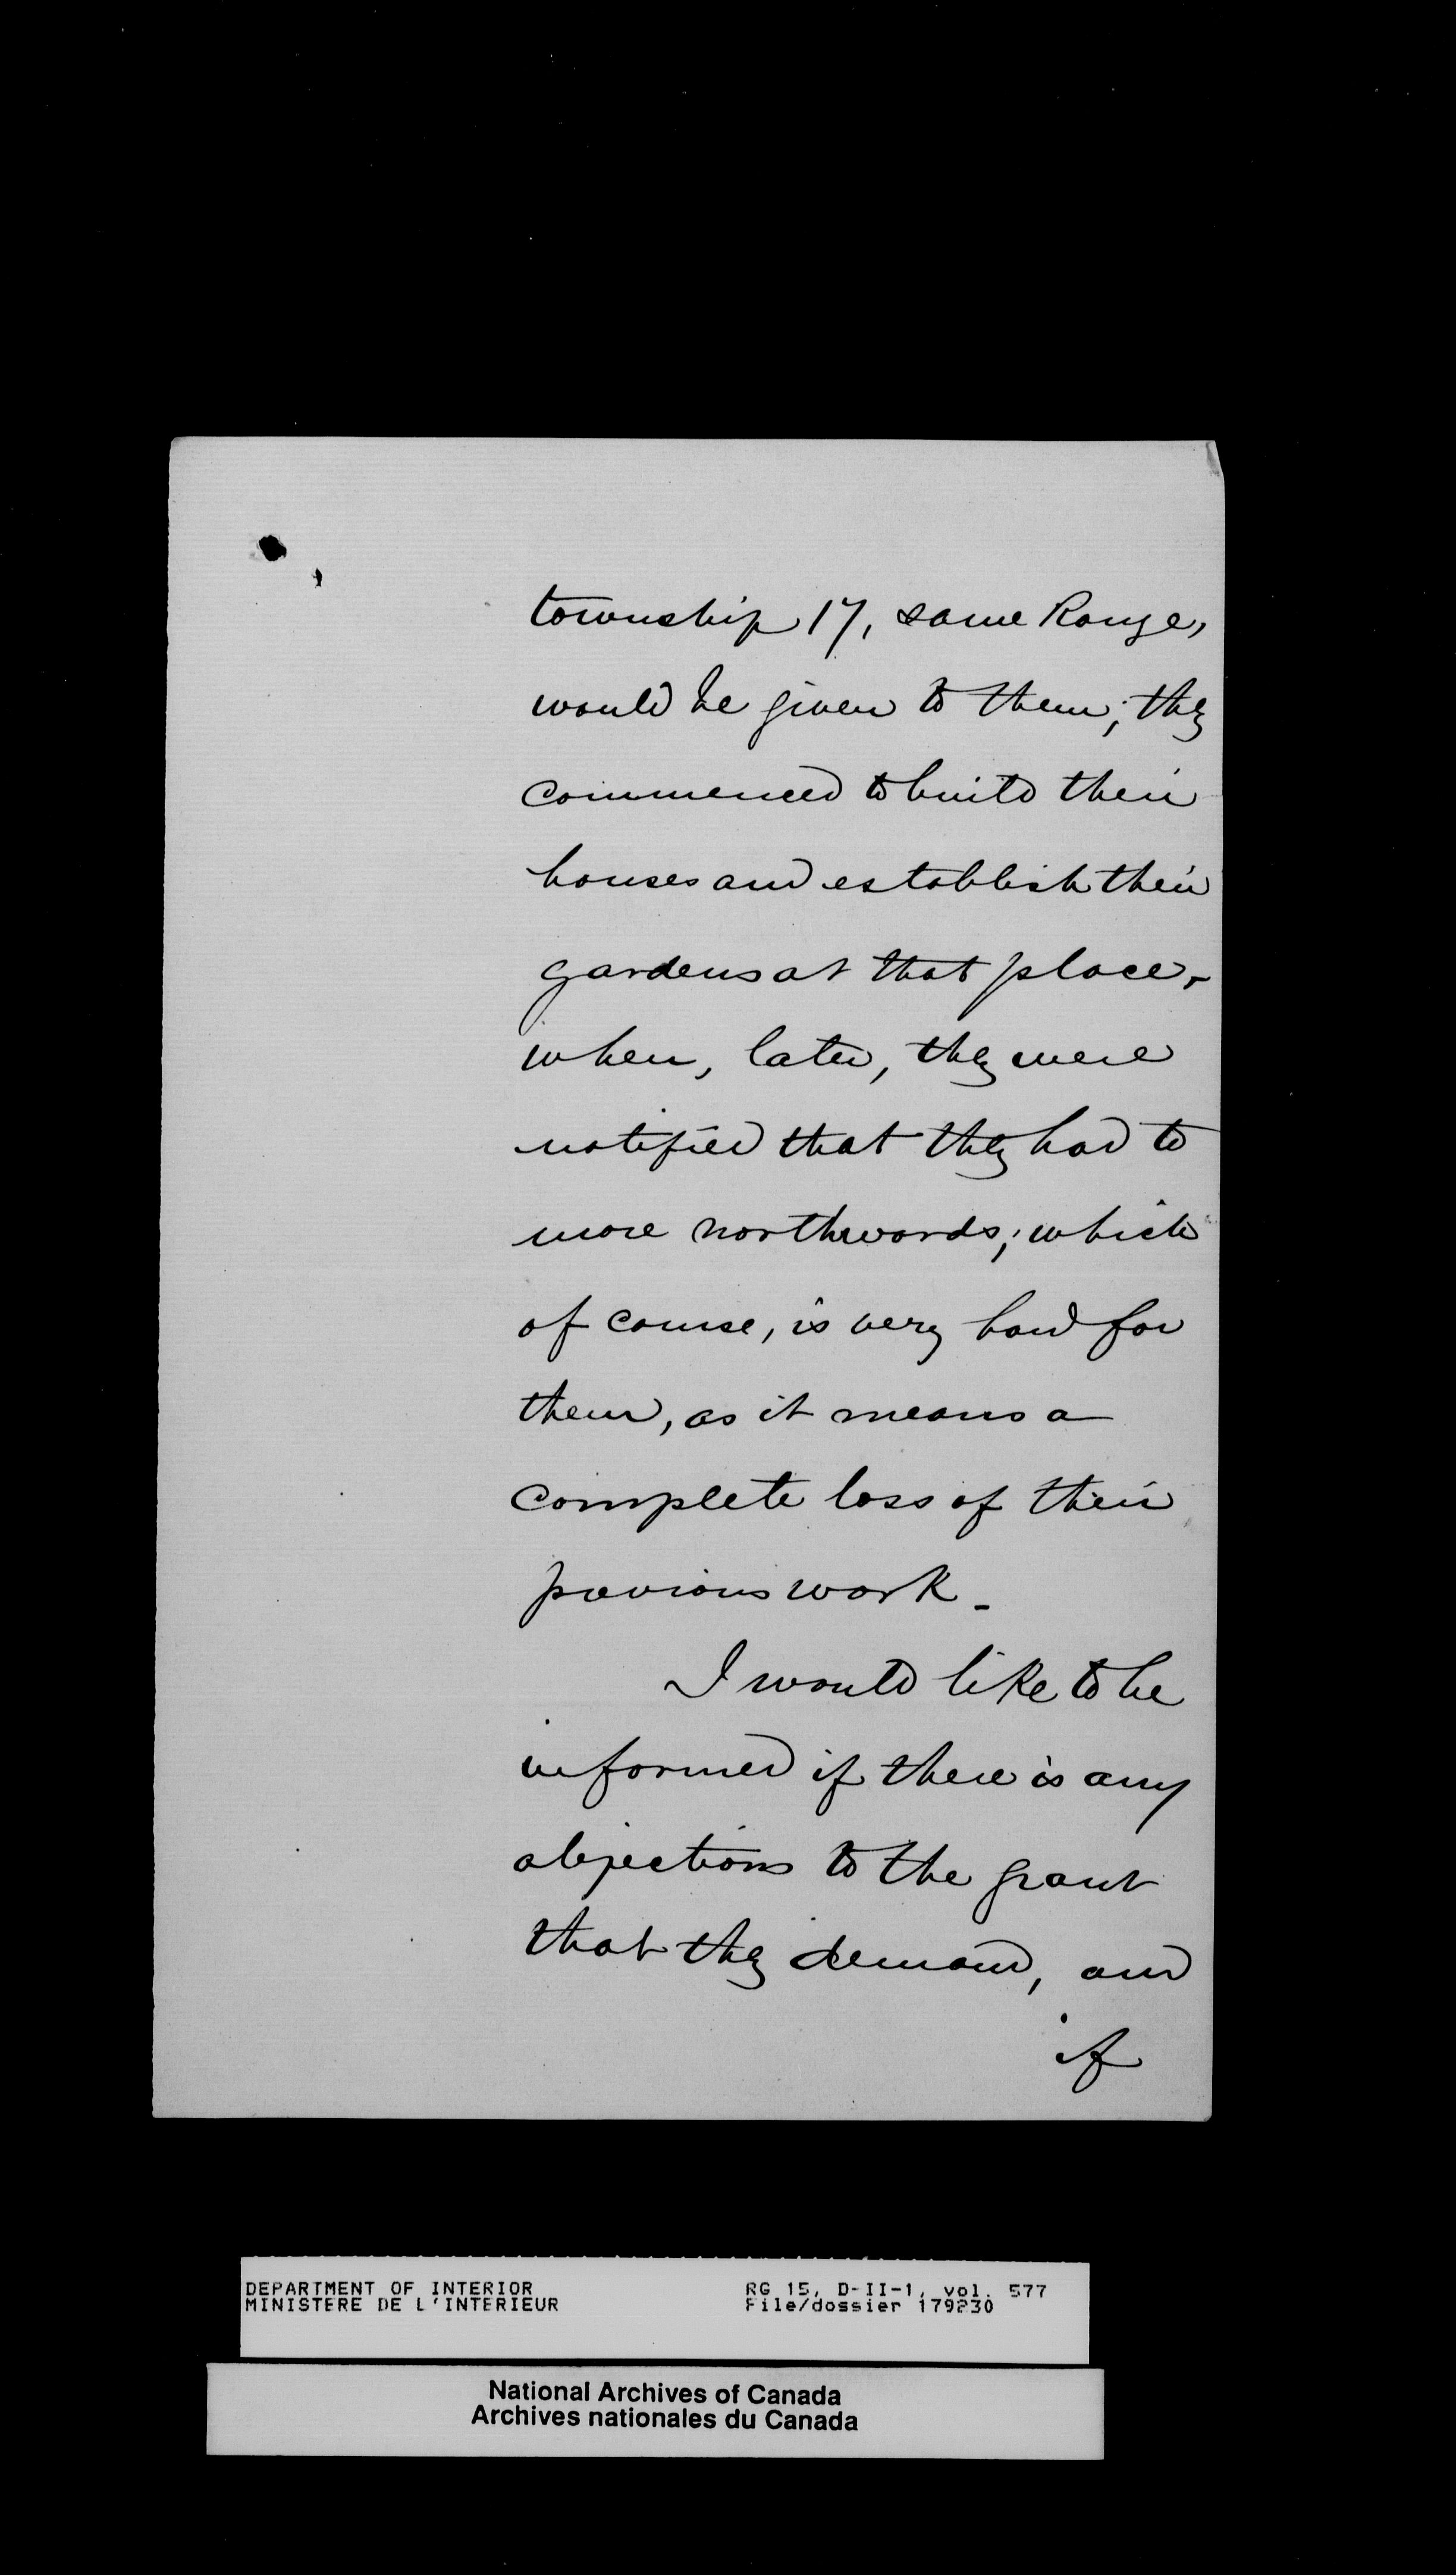 township 17, same Range,
would be given to them; they
commenced to build their
houses and establish their
gardens at that place,
when, later, they were
notified that they had to
move northwards; which
of course, is very hard for
them, as it means a
complete loss of their
previous work_
I would like to be
informed if there is any
objections to the grant
that they demand, and
if
DEPARTMENT OF INTERIOR RG 15, D-II-1, vol. 577
MINISTERE DE L'INTERIEUR File/dossier 179230
National Archives of Canada
Archives nationales du Canada